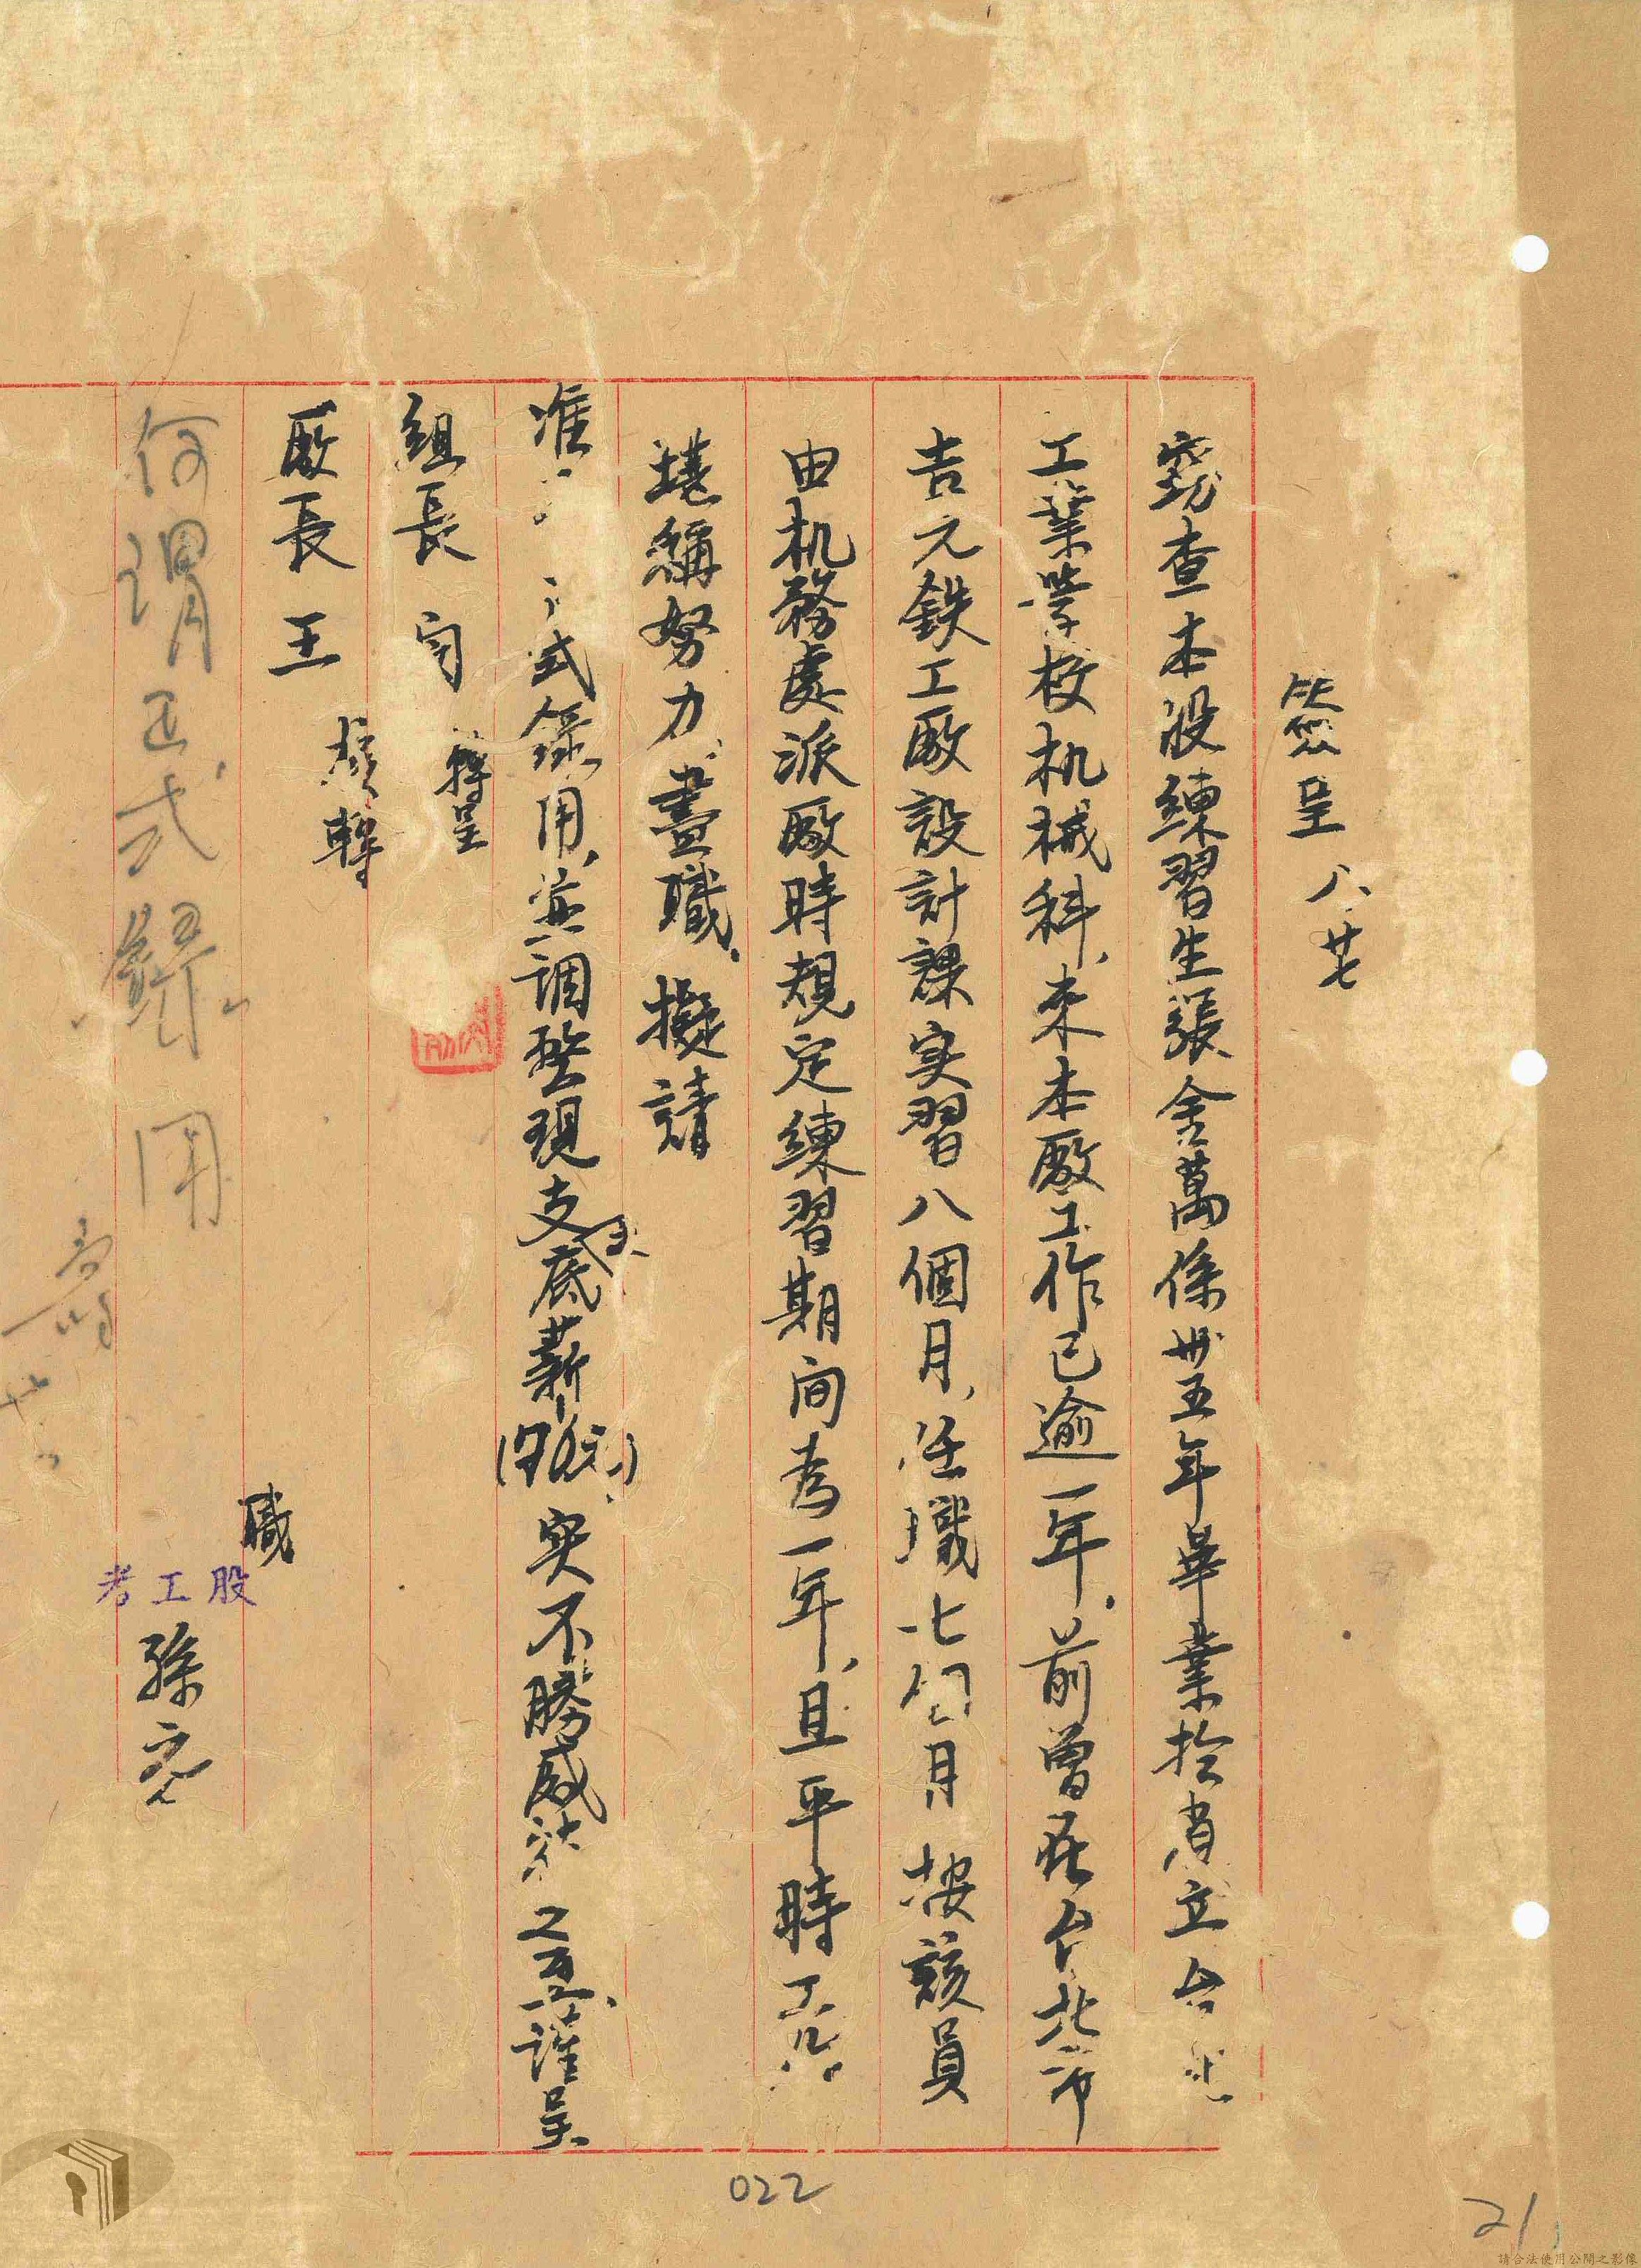 簽呈 八、廿七
竊查本股練習生張金萬係卅五年畢業於省立台北
工業學校机械科，來本廠工作已逾一年，前曾在台北市
吉元鉄工廠設計課实習八個月，任職七個月 按該員
由机務處派廠時規定練習期间為一年，且平時工作
堪稱努力、盡職、擬請
准 式錄用，並調整現支底薪(170元)实不勝感 之至、謹呈
組長
轉呈
廠長 王
核轉
職
考工股 孫
何謂正式"錄"用
022
21
請合法使用公開之影像